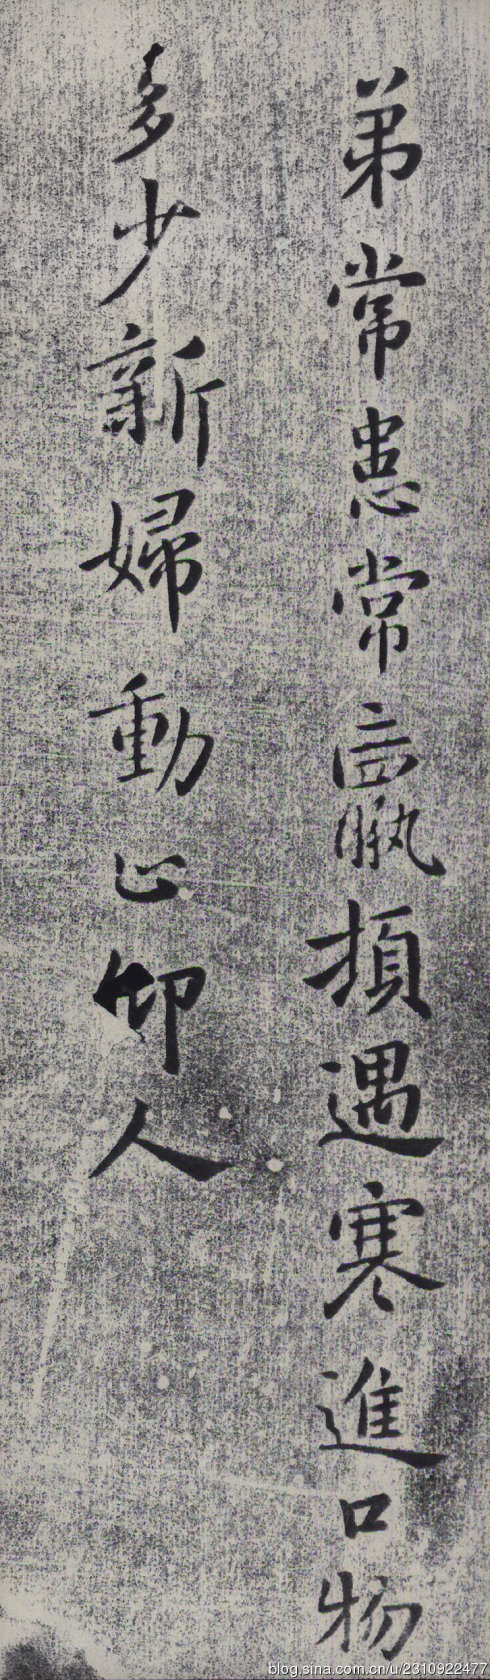 弟常患常羸頓遇寒進口物
多少新婦動止仰人
blog.sina.com.cn/u/2310922477